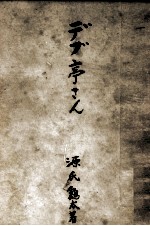 デブ亭さん
源氏鶏太著